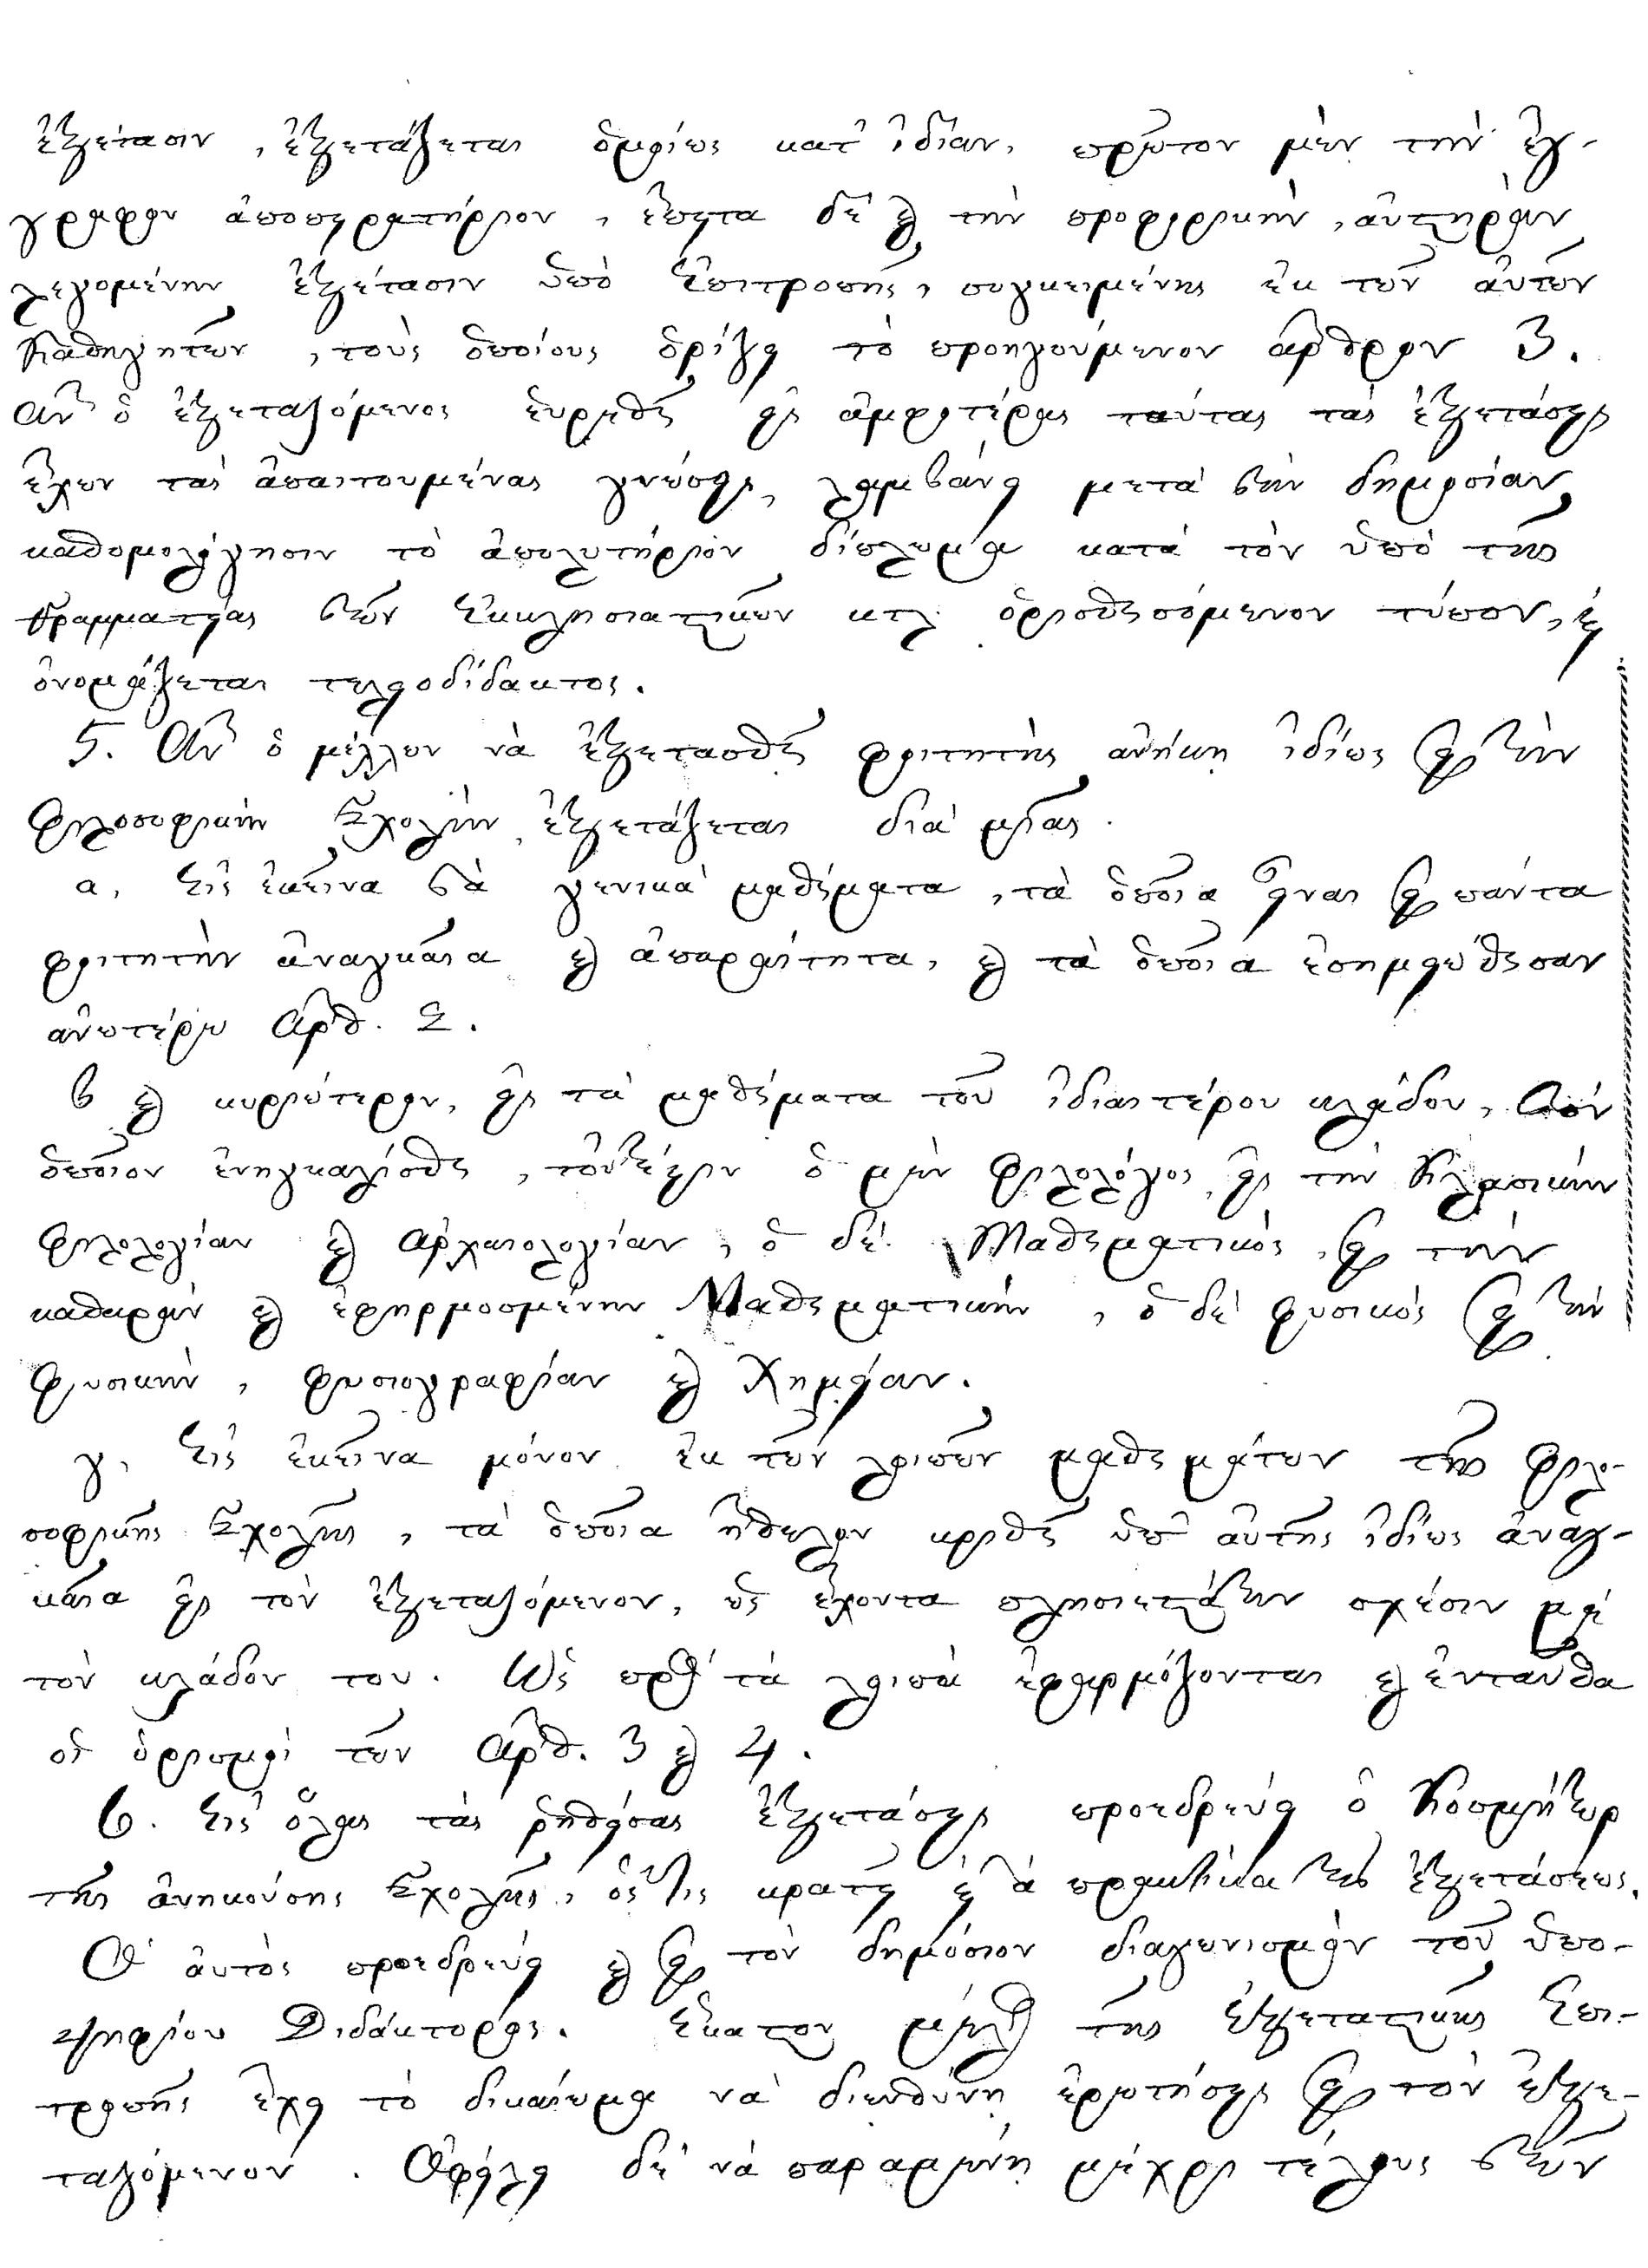 ἐξέτασιν, ἐξετάζεται ὁμοίως κατ' ἰδίαν, πρῶτον μὲν τὴν ἔγ-
γραφον ἀποπειρατήριον, ἔπειτα δὲ καὶ τὴν προφορικὴν, αὐστηρὰν
λεγομένην ἐξέτασιν ὑπὸ Ἐπιτροπῆς, συγκειμένης ἐκ τῶν αὐτῶν
Καθηγητῶν, τοὺς ὁποίους ὁρίζει τὸ προηγούμενον ἄρθρον 3.
Ἂν ὁ ἐξεταζόμενος εὑρεθῇ εἰς ἀμφοτέρας ταύτας τὰς ἐξετάσεις
ἔχων τὰς ἀπαιτουμένας γνώσεις, λαμβάνει μετὰ τὴν δημοσίαν
καθομολόγησιν τὸ ἀπολυτήριον δίπλωμα κατὰ τὸν ὑπὸ τῆς
Γραμματείας τῶν Ἐκκλησιαστικῶν κτλ ὁρισθησόμενον τύπον, καὶ
ὀνομάζεται τελειοδίδακτος.
5. Ἂν ὁ μέλλων νὰ ἐξετασθῇ φοιτητὴς ἀνήκῃ ἰδίως εἰς τὴν
Φιλοσοφικὴν Σχολὴν, ἐξετάζεται διὰ μιᾶς.
α, Εἰς ἐκεῖνα τὰ γενικὰ μαθήματα, τὰ ὁποῖα εἶναι εἰς πάντα
φοιτητὴν ἀναγκαῖα καὶ ἀπαραίτητα, καὶ τὰ ὁποῖα ἐσημειώθησαν
ἀνωτέρω Ἄρθ. 2.
β καὶ κυριώτερον, εἰς τὰ μαθήματα τοῦ ἰδιαιτέρου κλάδου, τὸν
ὁποῖον ἐνηγκαλίσθη, τοὐτέστιν ὁ μὲν Φιλολόγος, εἰς τὴν Κλασικὴν
Φιλολογίαν καὶ Ἀρχαιολογίαν, ὁ δὲ Μαθηματικὸς, εἰς τὴν
καθαρὰν καὶ ἐφηρμοσμένην Μαθηματικὴν, ὁ δὲ φυσικὸς εἰς τὴν
Φυσικὴν, φυσιογραφίαν καὶ Χημείαν.
γ, Εἰς ἐκεῖνα μόνον ἐκ τῶν λοιπῶν μαθημάτων τῆς Φιλο-
σοφικῆς Σχολῆς, τὰ ὁποῖα ἤθελον κριθῆ ὑπ' αὐτῆς ἰδίως ἀναγ-
καῖα εἰς τὸν ἐξεταζόμενον, ὡς ἔχοντα πλησιεστάτην σχέσιν μὲ
τὸν κλάδον του. Ὡς πρὸς τὰ λοιπὰ ἐφαρμόζονται καὶ ἐνταῦθα
οἱ ὁρισμοὶ τῶν Ἄρθ. 3 καὶ 4.
6. Εἰς ὅλας τὰς ῥηθείσας ἐξετάσεις προεδρεύει ὁ Κοσμήτωρ
τῆς ἀνηκούσης Σχολῆς, ὅστις κρατεῖ καὶ τὰ πρακτικὰ τῆς ἐξετάσεως.
Ὁ αὐτὸς προεδρεύει καὶ εἰς τὸν δημόσιον διαγωνισμὸν τοῦ ὑπο-
ψηφίου Διδάκτορος. Ἕκαστον μέλος τῆς ἐξεταστικῆς Ἐπι-
τροπῆς ἔχει τὸ δικαίωμα νὰ διευθύνῃ ἐρωτήσεις εἰς τὸν ἐξε-
ταζόμενον. Ὀφείλει δὲ νὰ παραμένῃ μέχρι τέλους τῶν